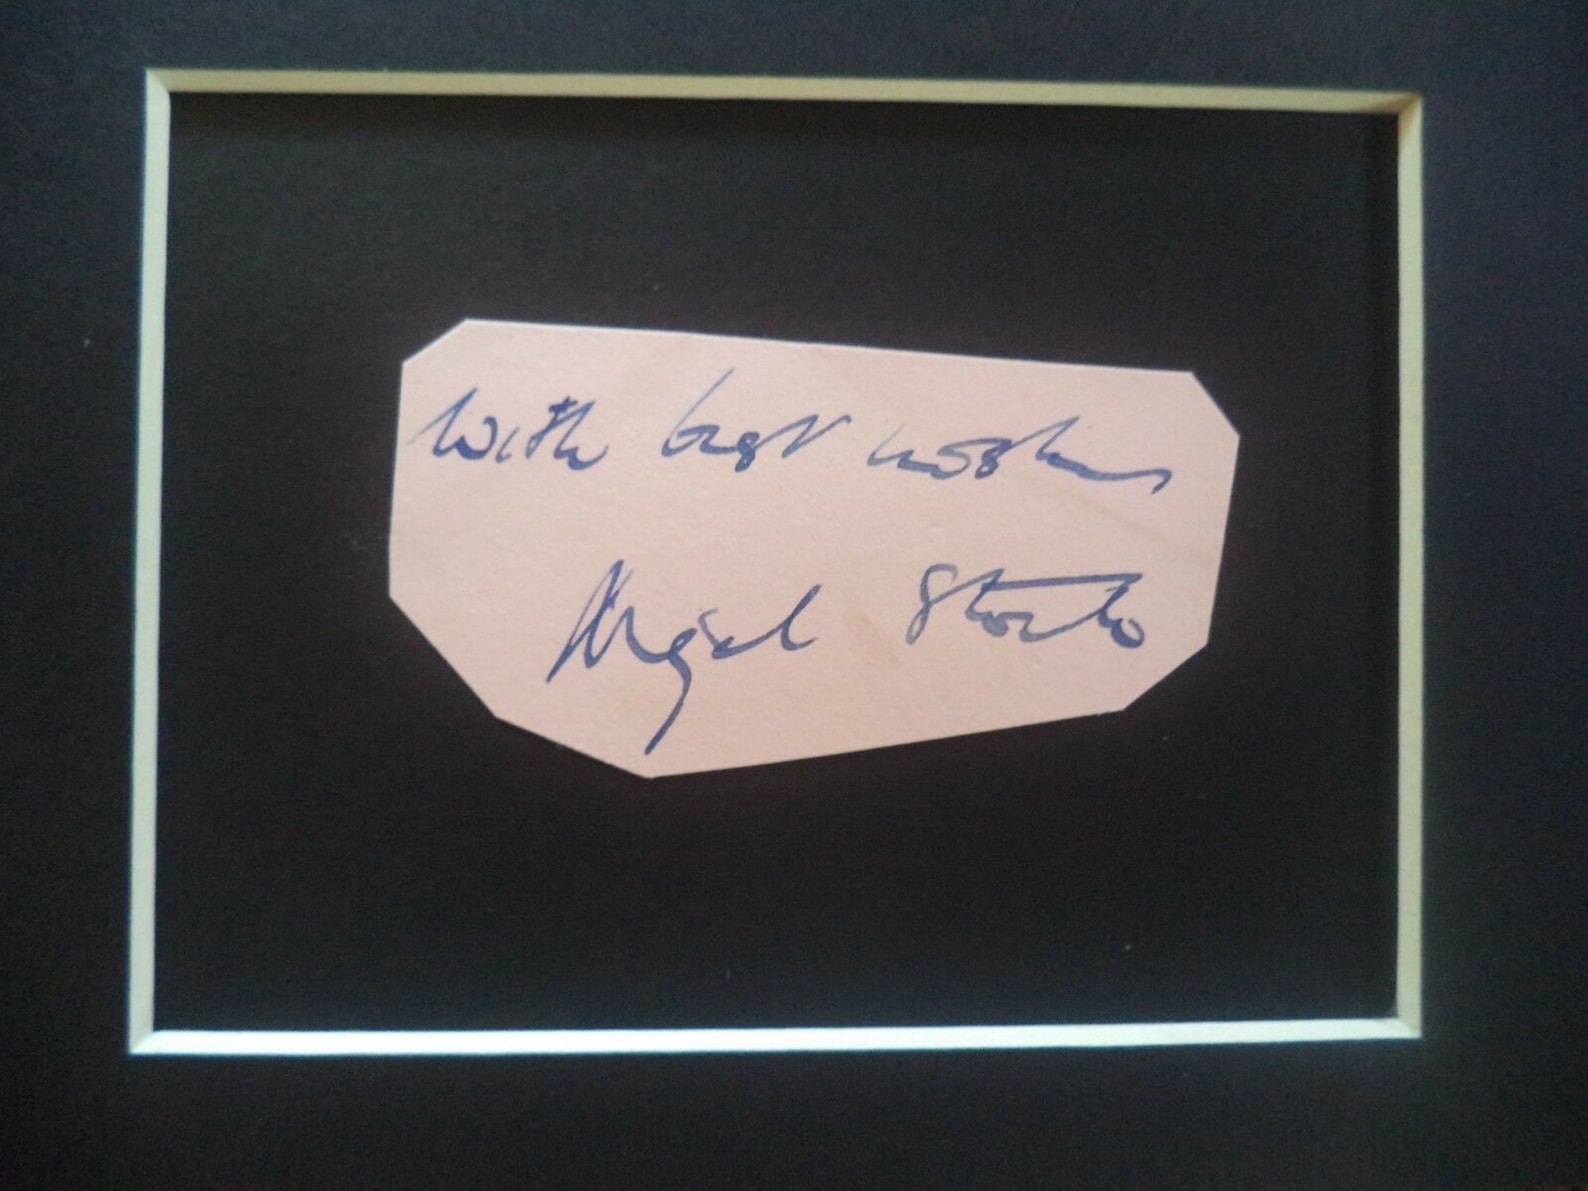 with best wishes
Nigel Stock